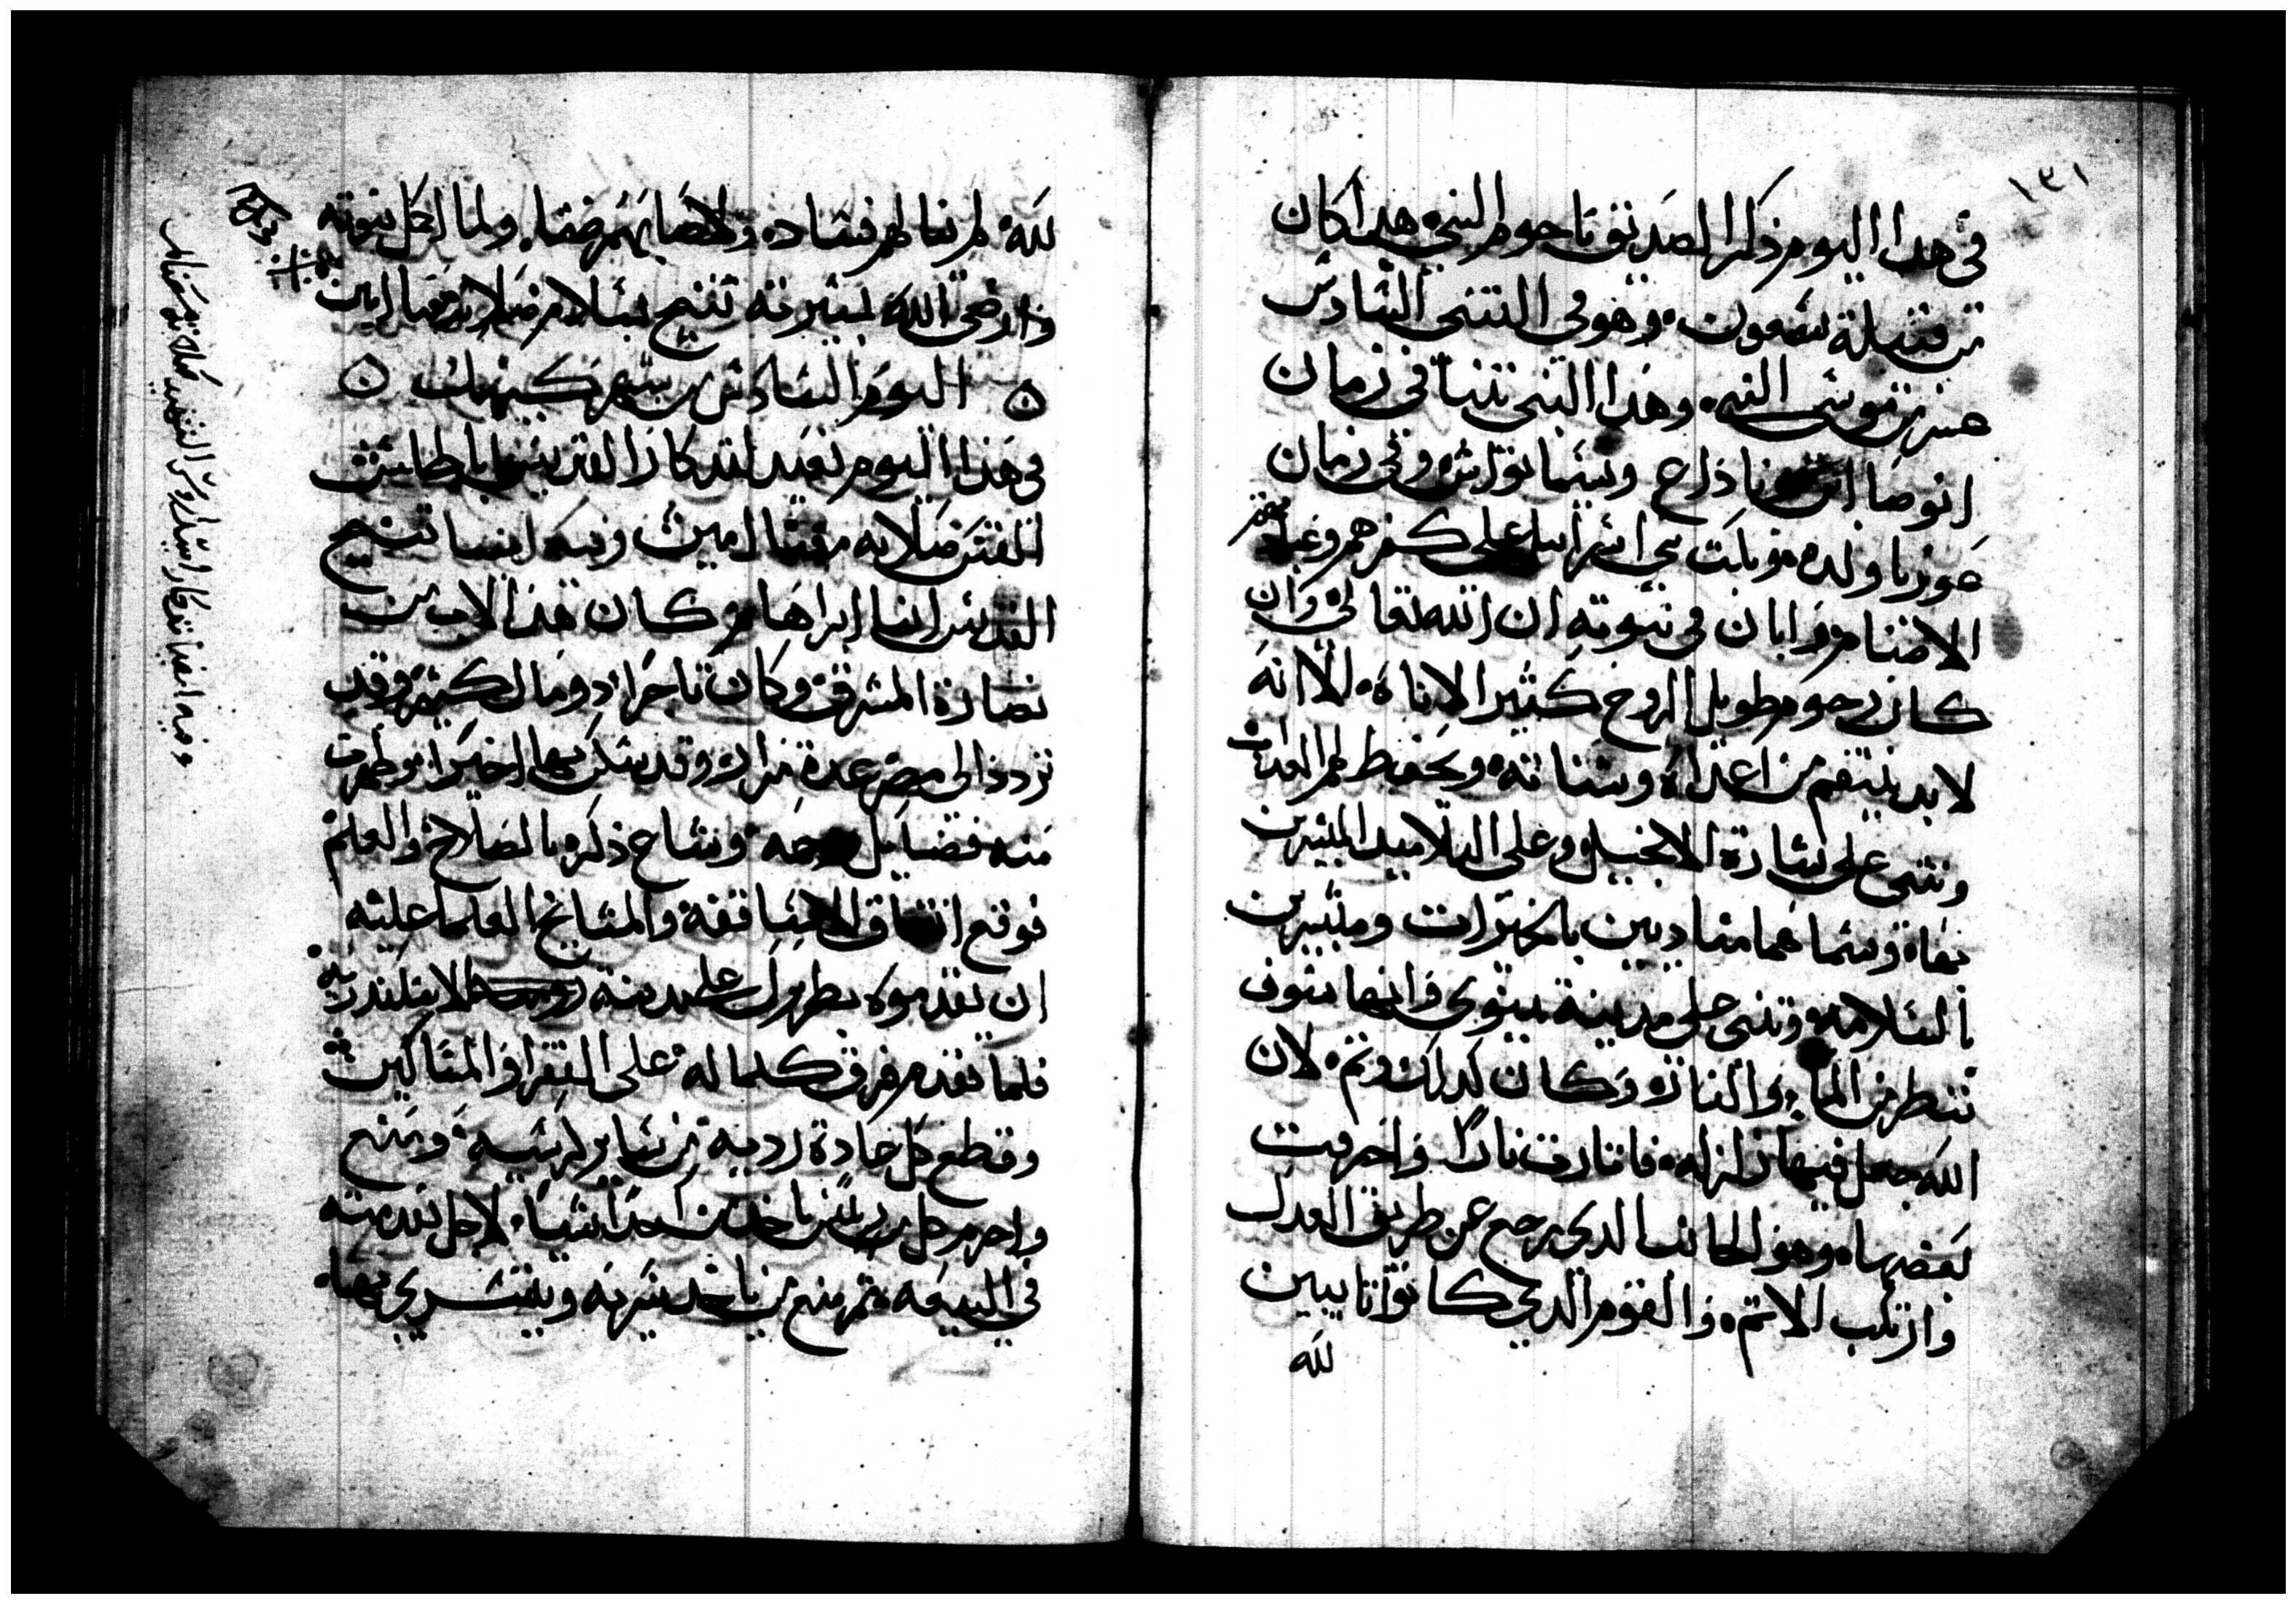 ١٣١
في هدا اليوم ذكر الصديق ناحوم النبي هدا كان
من قبيلة شمعون وهو في التنبي السادس
عشر من موسى النبي وهدا النبي تنبا في زمان
انوصا ابن ناداع وسيما نوراش وفي زمان
عوزيا ولده وبكت بني اسراييل على كفرهم وعبادتهم
الاصنام وابان في نبوته ان الله تعالى وان
كان رحوم طويل الروح كثير الاناة الا انه
لابد ينتقم من اعداه وشناته ويحفظ لهم العداب
وتنبى على بشارة الانجيل وعلى التلاميد المبشرين
بهاه وسماهما منادين بالخيرات ومبشرين
بالسلامه وتنبى على مدينة نينوى وانها سوف
تبطر من الماء والنار وكان كدلك وتم لان
الله جعل فيها زلزله فاثارت نارا واحرقت
بعضها وهو الجانب الدي رجع عن طريق العدل
وارتكب الاتم والقوم الدي كانوا تايبين
لله
لله لم ينالهم فساد ولا اصابهم ضقاه ولما اكمل نبوته
وارضى الله بسيرته تنيح بسلام صلاته معنا امين
اليوم السادس من شهر كيهك
في هدا اليوم نعيد لتدكار القديسه باطاسس
القس صلاته معنا امين وفيه ايضا تنيح
القديس انبا ابراهام كان هدا الاب من
نصارة المشرق وكان تاجرا دو مال كثير وقد
تردد الى مصر عدة مرار وقد سكن بها اخيرا وظهرت
منه فضايل جمه وشاع ذكره بالصلاح والعلم
فوقع اتفاق الاساقفة والمشايخ العلما عليه
ان يقدموه بطريرك على مدينة الاسكندريه
فلما تقدم فرق كلما له على الفقرا والمساكين
وقطع كل عادة رديه من ساير كرسيه ومنع
واحرم كل من ياخد من احد شيا لاجل تقدمته
في البيعه ثم منع من ياخد سريه ويتسرى بها
وفيه ايضا تدكار استاروس الشهيد صلاته معنا امين